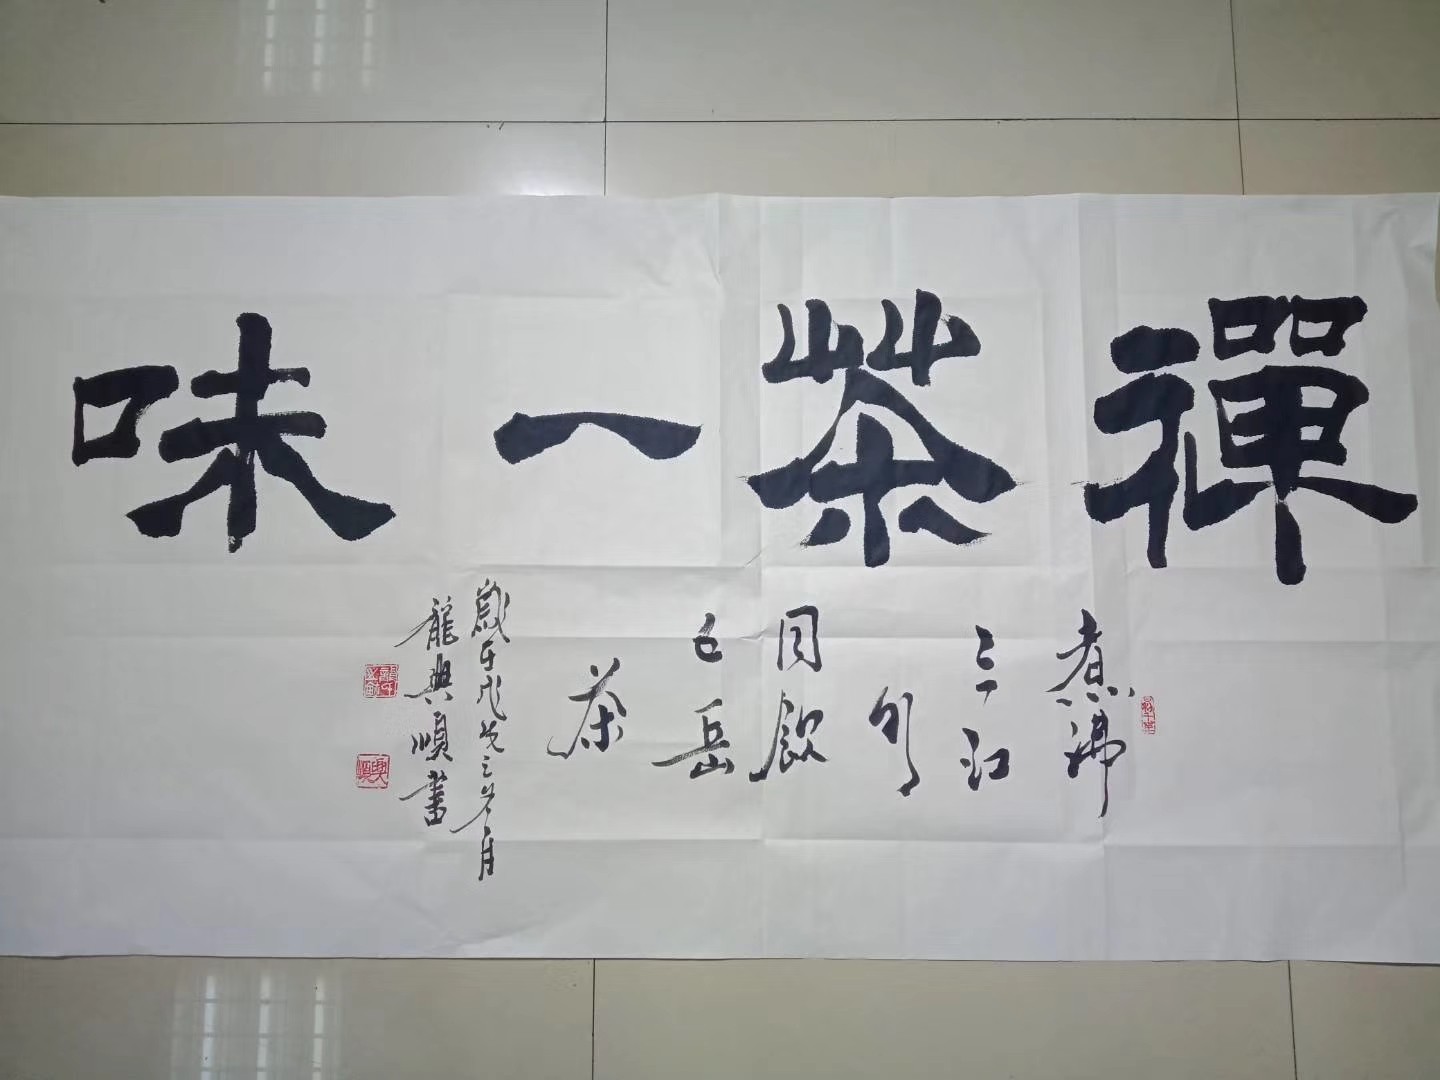 禪茶一味
煮沸
三江
水
同飲
五岳
茶
歲于戊戌之月
龍興順書